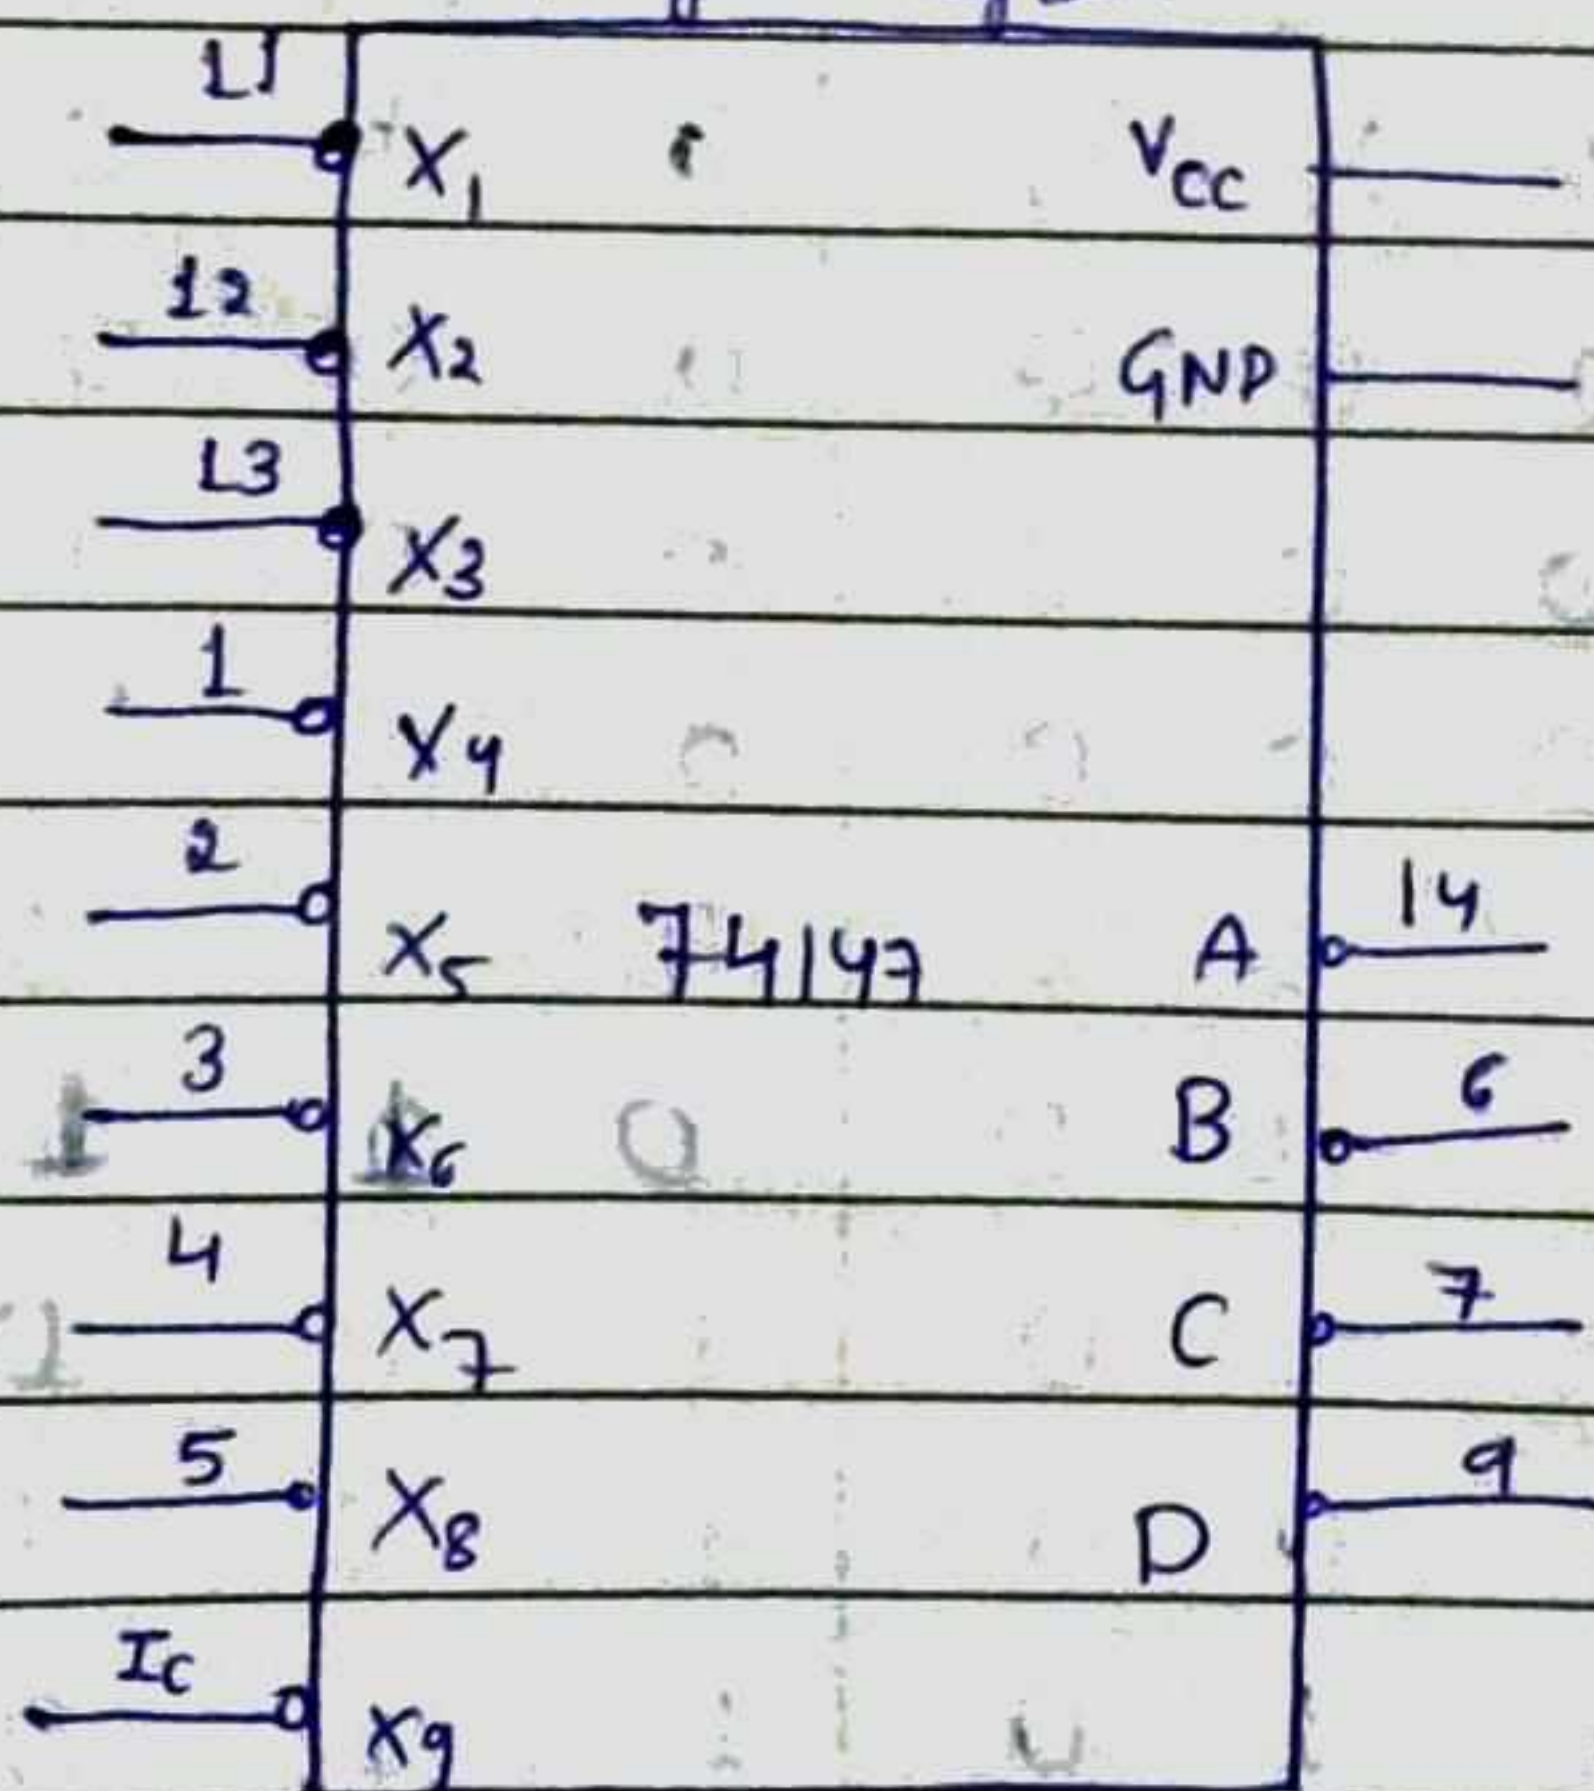 11
X1 VCC
12
X2 GND
13
X3
1
X4
2 14
X5 74147 A
3 6
X6 B
4 7
X7 C
5 9
X8 D
Ic
X9